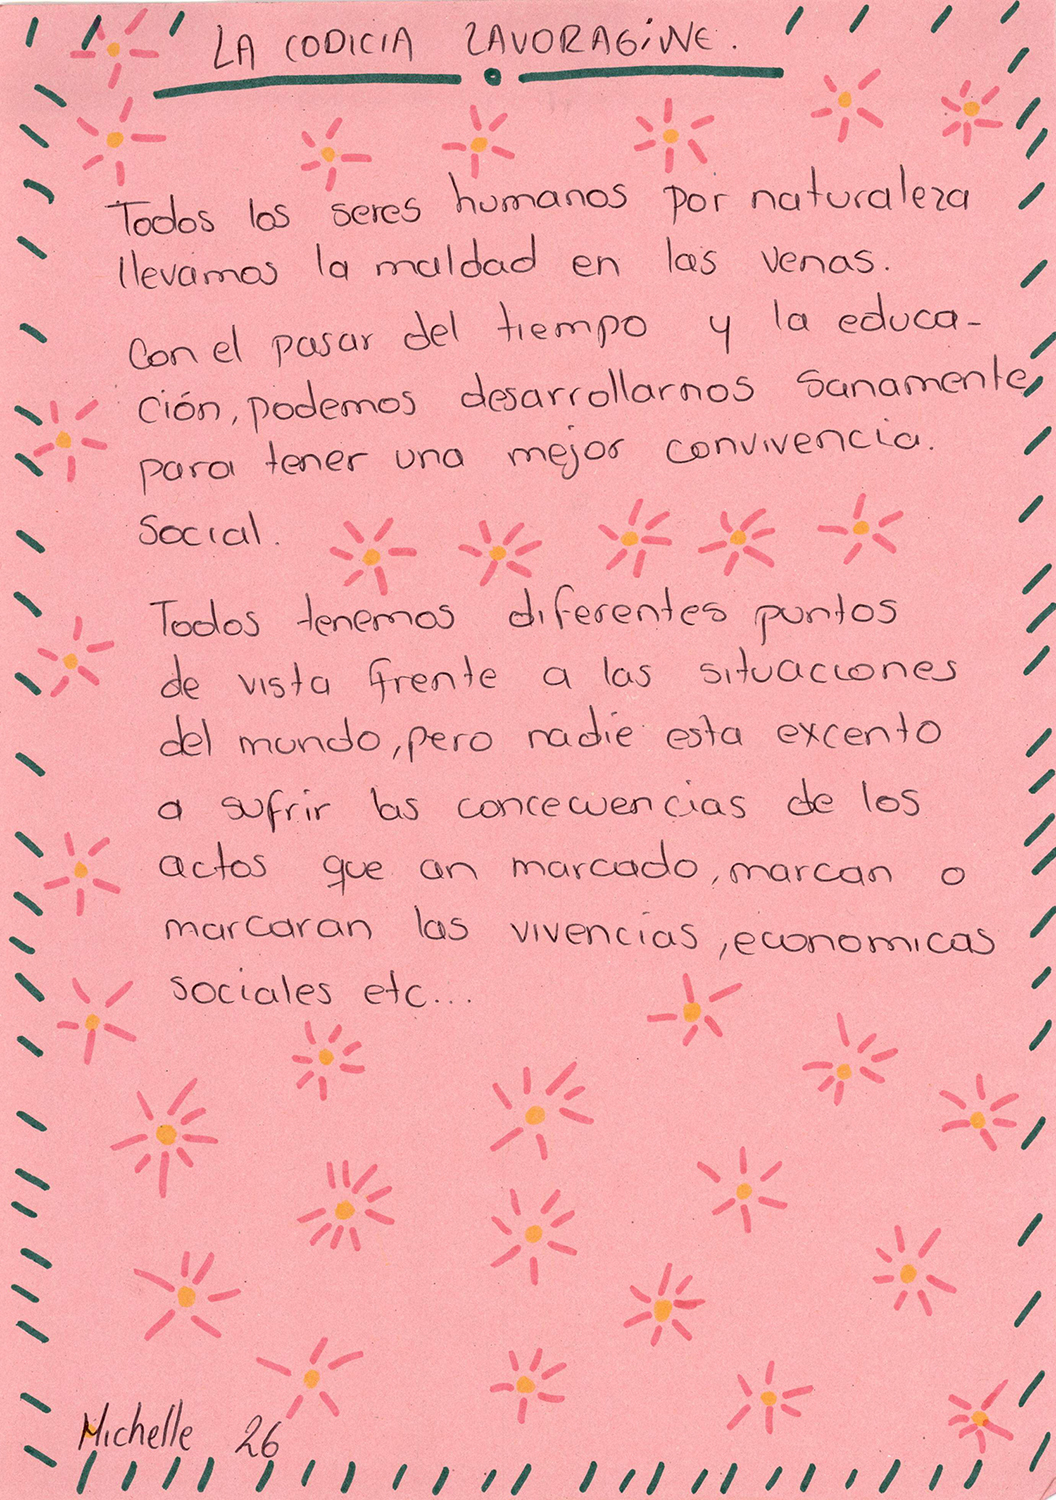 LA CODICIA ZAVORAGINE.
Todos los seres humanos por naturaleza
llevamos la maldad en las venas.
Con el pasar del tiempo y la educa-
ción, podemos desarrollarnos sanamente,
para tener una mejor convivencia.
Social.
Todos tenemos diferentes puntos
de vista frente a las situaciones
del mundo, pero nadie esta excento
a sufrir las concecuencias de los
actos que an marcado, marcan o
marcaran las vivencias, economicas
sociales etc...
Michelle 26